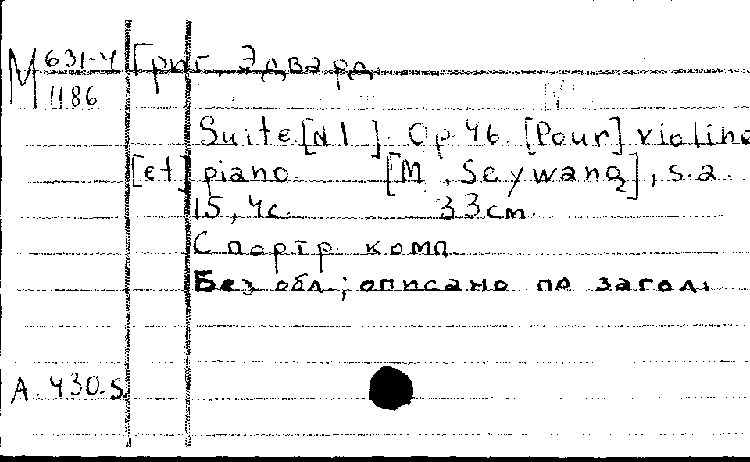 М 631-4 Григ, Эдвард.
1186
Suite [N 1]. Op 46 [Pour] violino
[et] piano. [M., Seywang], s.a.
15, 4с. 33см.
С портр. комп.
Без обл.; описано по загол.
A.430.S.